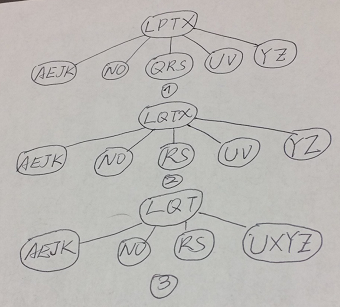 LPTX
AEJK NO QRS UV YZ
1
LQTX
AEJK NO RS UV YZ
2
LQT
AEJK NO RS UXYZ
3